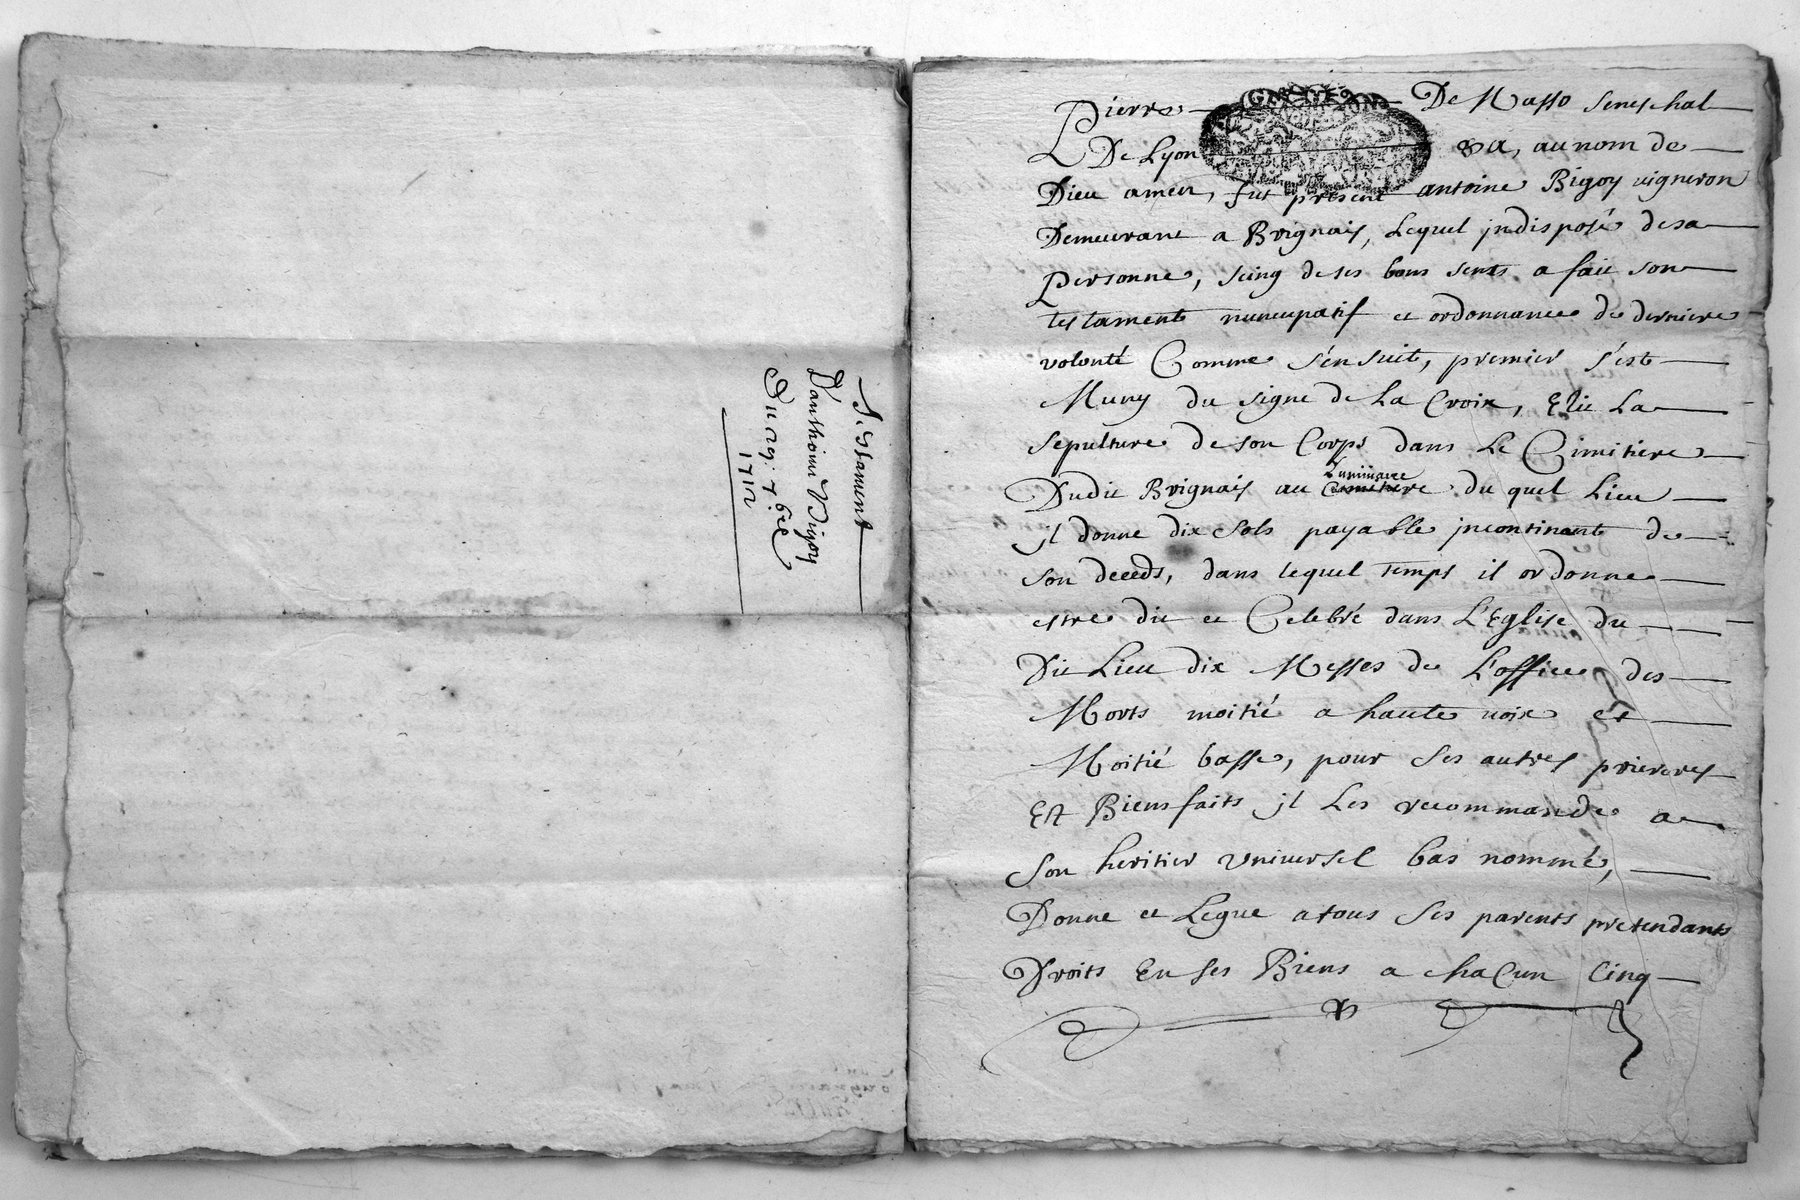 Testament
D'anthoine Vigoy
Du 27: 7bre
1712
Pierre De Masso seneschal
De Lyon &a, au nom de
Dieu amen, fut present antoine Bigoy vigneron
Demeurant a Brignais, Lequel jndisposé desa
Personne, seing de ses bons sents a fait son
testament nuncupatif et ordonnance de derniere
volonté Comme s'ensuit, premier s'est
Muny du signe de La Croix, Elit La
sepulture de son Corps dans Le Cimitiere
Dudit Brignais au Luminaire du quel Lieu
jl donne dix sols payable jncontinant de
son deceds, dans lequel temps il ordonne
estre dit et Celebré dans L'Eglise du
Dit Lieu dix Messes de L'office des
Morts moitié a haute voix et
Moitié basse, pour ses autres prieres
Et Biensfaits jl Les recommande a
son heritier universel bas nommé,
Donne et Legue atous ses parents pretendants
Droits En ses Biens a chaCun Cinq